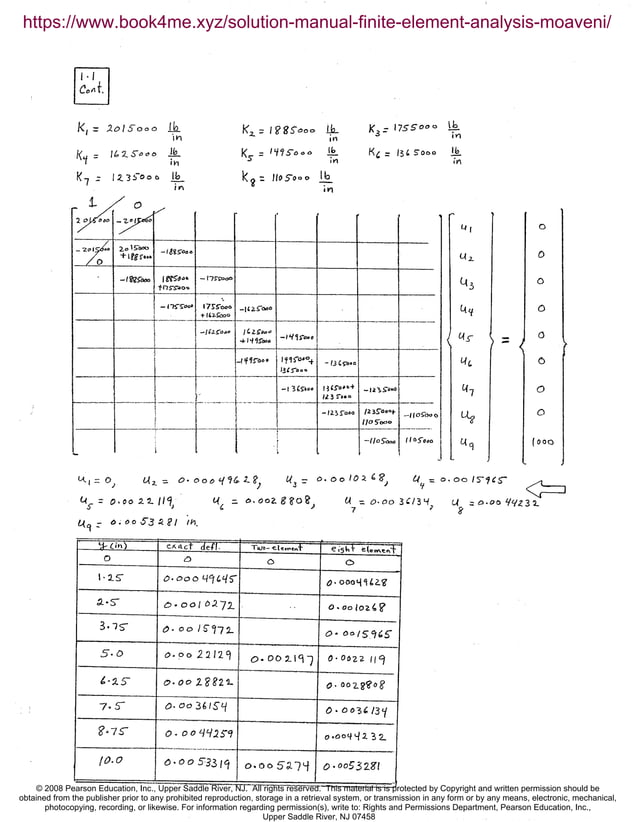 https://www.book4me.xyz/solution-manual-finite-element-analysis-moaveni/
1.1
Cont.
K1 = 2015000 lb/in K2 = 1885000 lb/in K3 = 1755000 lb/in
K4 = 1625000 lb/in K5 = 1495000 lb/in K6 = 1365000 lb/in
K7 = 1235000 lb/in K8 = 1105000 lb/in
1 0
2015000 -2015000 u1 0
-2015000 0 2015000 +1885000 -1885000 u2 0
-1885000 1885000 +1755000 -1755000 u3 0
-1755000 1755000 +1625000 -1625000 u4 0
-1625000 1625000 +1495000 -1495000 u5 = 0
-1495000 1495000+ 1365000 -1365000 u6 0
-1365000 1365000+ 1235000 -1235000 u7 0
-1235000 1235000+ 1105000 -1105000 u8 0
-1105000 1105000 u9 1000
u1 = 0, u2 = 0.00049628, u3 = 0.0010268, u4 = 0.0015965
u5 = 0.0022119, u6 = 0.0028808, u7 = 0.0036134, u8 = 0.0044232
u9 = 0.0053281 in.
y (in) exact defl. Two-element eight element
0 0 0 0
1.25 0.00049645 0.00049628
2.5 0.0010272 0.0010268
3.75 0.0015972 0.0015965
5.0 0.0022129 0.002197 0.0022119
6.25 0.0028822 0.0028808
7.5 0.0036154 0.0036134
8.75 0.0044259 0.0044232
10.0 0.0053319 0.005274 0.0053281
© 2008 Pearson Education, Inc., Upper Saddle River, NJ. All rights reserved. This material is is protected by Copyright and written permission should be
obtained from the publisher prior to any prohibited reproduction, storage in a retrieval system, or transmission in any form or by any means, electronic, mechanical,
photocopying, recording, or likewise. For information regarding permission(s), write to: Rights and Permissions Department, Pearson Education, Inc.,
Upper Saddle River, NJ 07458